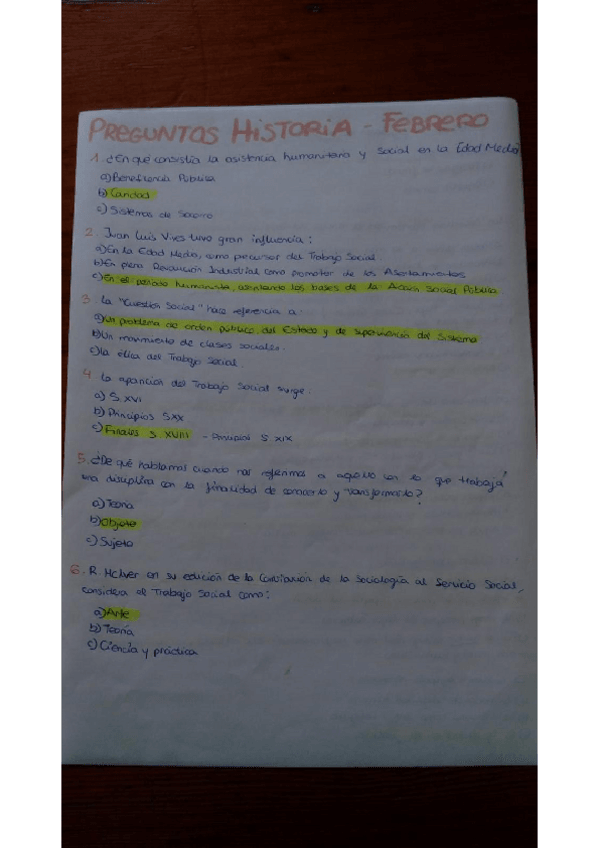 PREGUNTAS HISTORIA - FEBRERO
1. ¿En qué consistía la asistencia humanitaria y social en la Edad Media?
a) Beneficencia Pública
b) Caridad
c) Sistemas de Socorro
2. Juan Luis Vives tuvo gran influencia:
a) En la Edad Media, como precursor del Trabajo Social.
b) En plena Revolución Industrial como promotor de los Asentamientos
c) En el periodo humanista, asentando los bases de la Acción Social Pública
3. La "Cuestión Social" hace referencia a:
a) Un problema de orden público, del Estado y de supervivencia del Sistema
b) Un movimiento de clases sociales.
c) la ética del Trabajo Social.
4. La aparición del Trabajo Social surge:
a) S. XVI
b) Principios S.XX
c) Finales S. XVIII - Principios S. XIX
5. ¿De qué hablamos cuando nos referimos a aquello con lo que trabaja
una disciplina con la finalidad de conocerlo y transformarlo?
a) Teoría
b) Objeto
c) Sujeto
6. R. McIver en su edición de la Contribución de la Sociología al Servicio Social,
considera el Trabajo Social como:
a) Arte
b) Teoría
c) Ciencia y práctica